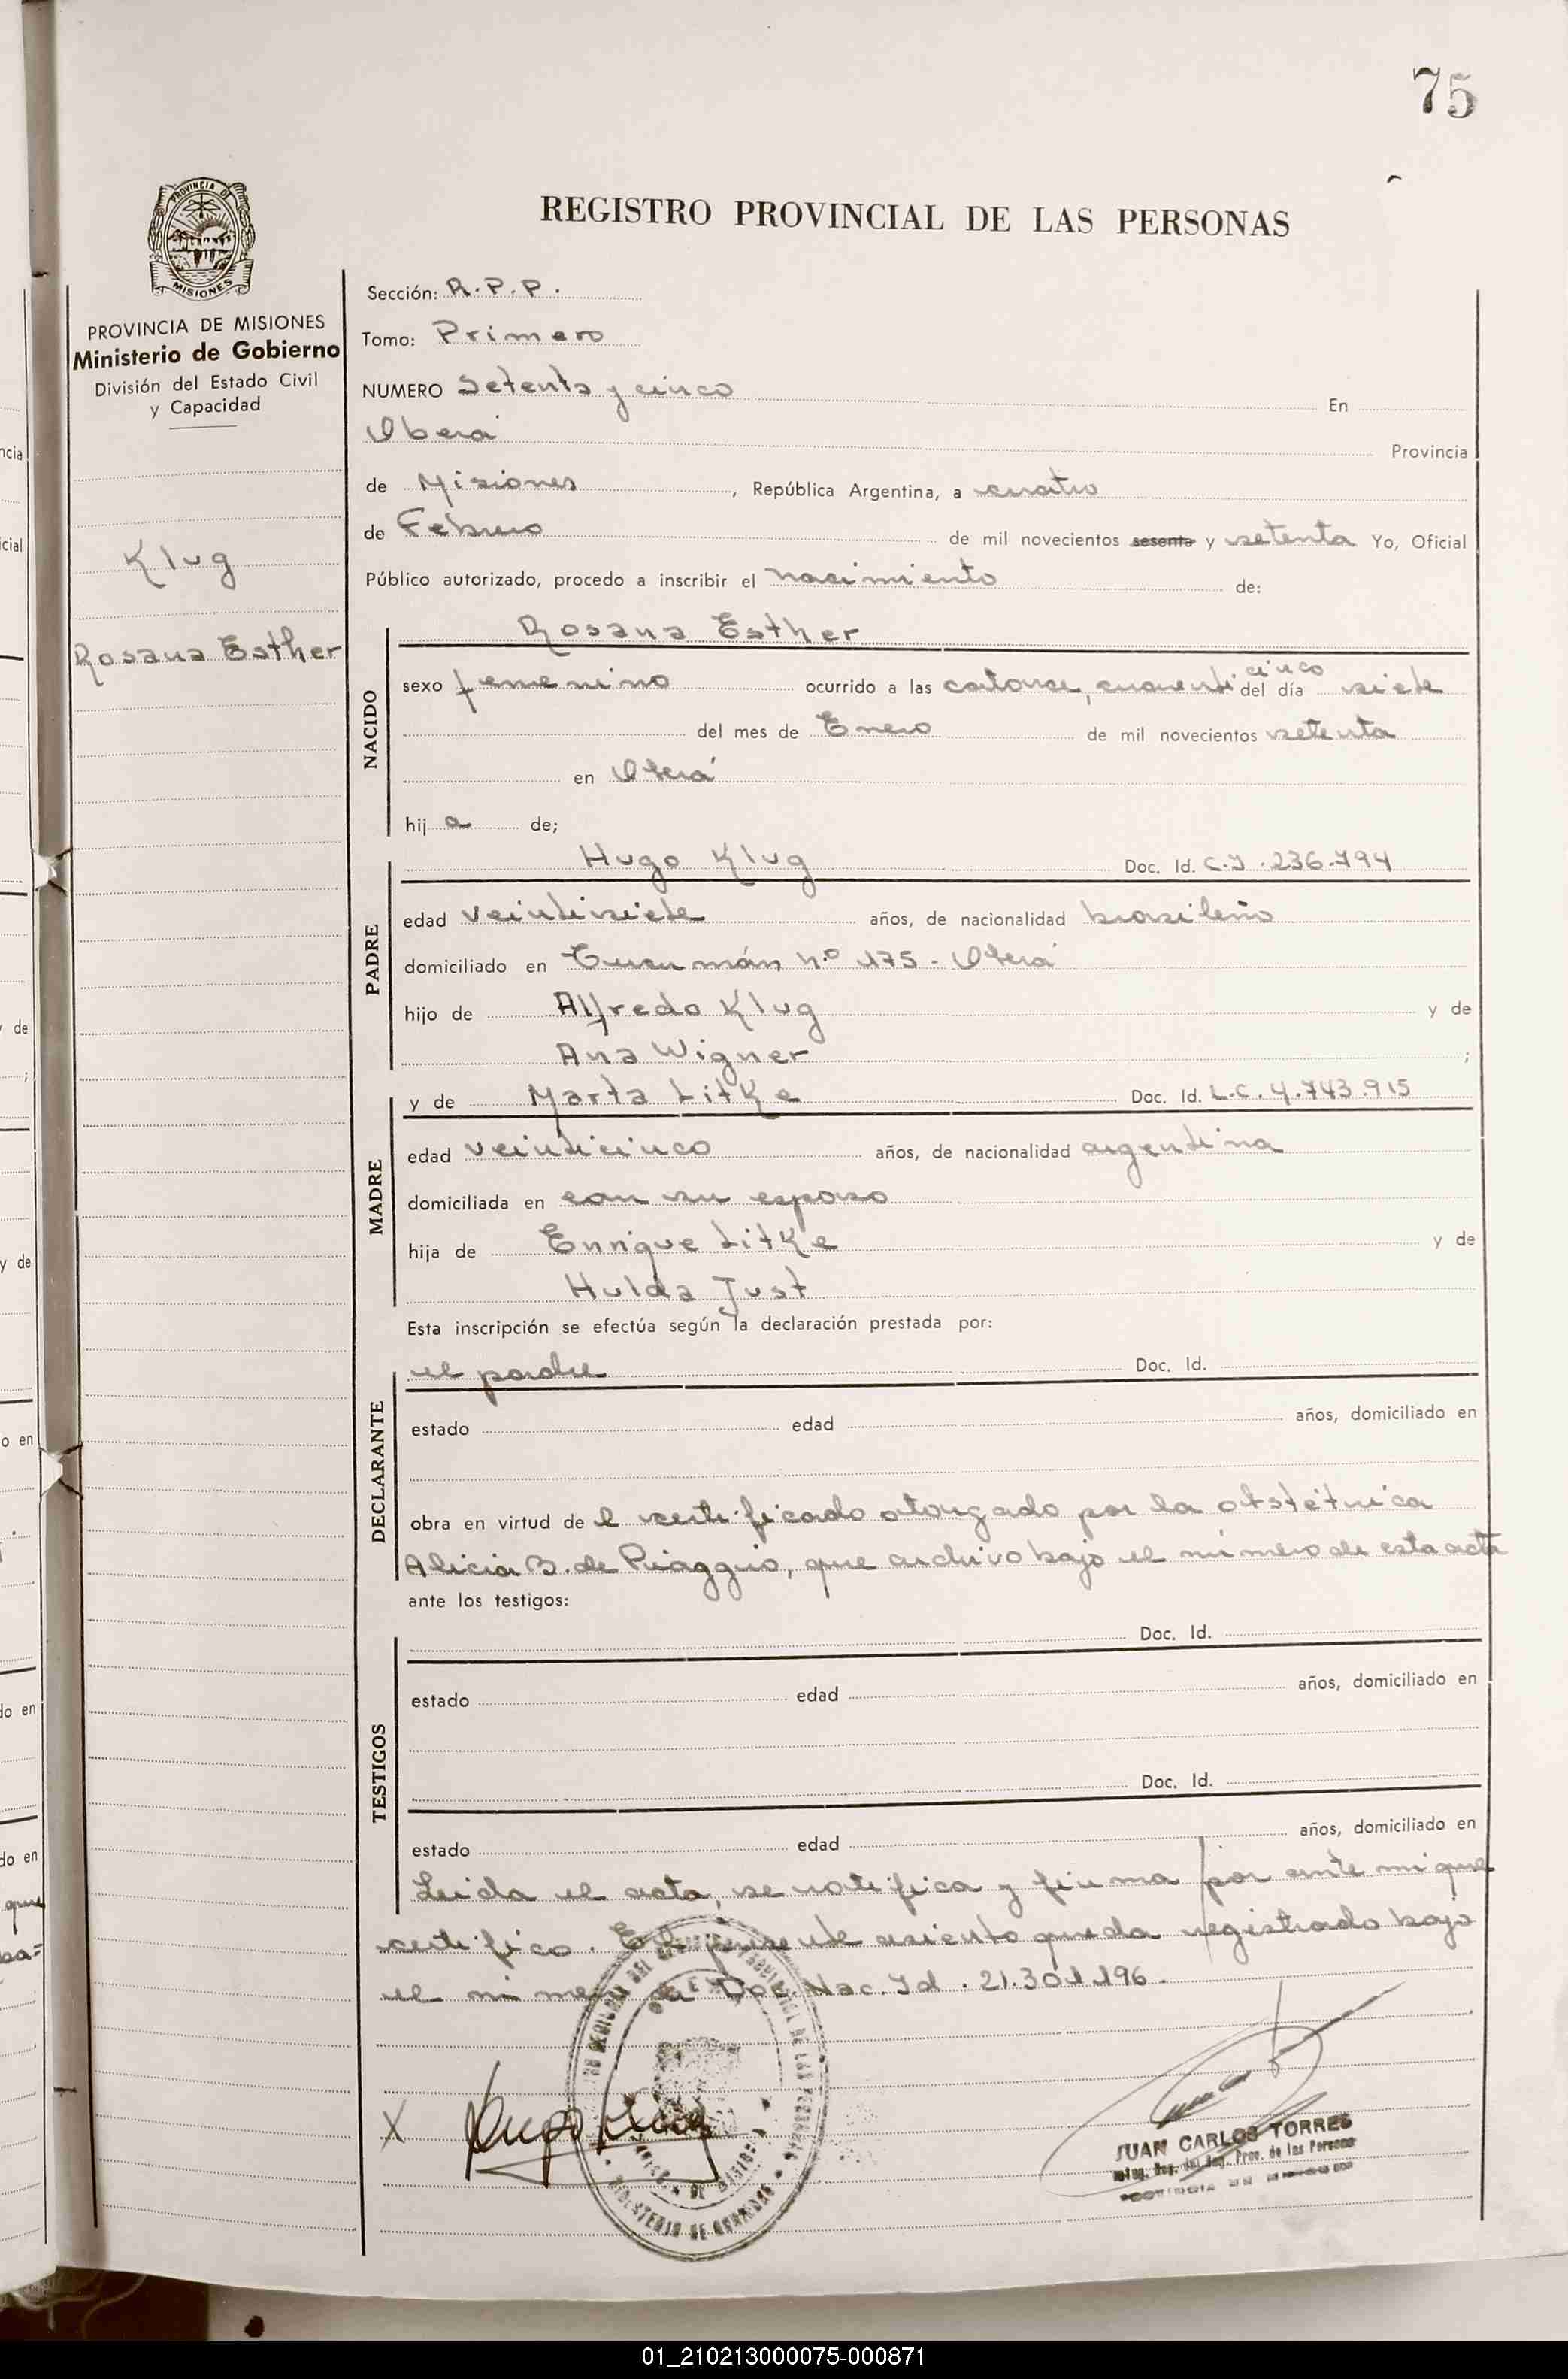 75
REGISTRO PROVINCIAL DE LAS PERSONAS
PROVINCIA DE
MISIONES
PROVINCIA DE MISIONES
Ministerio de Gobierno
División del Estado Civil
y Capacidad
Klug
Rosana Esther
Sección: R.P.P.
Tomo: Primero
NUMERO Setenta y cinco En
Oberá Provincia
de Misiones, República Argentina, a cuatro
de Febrero de mil novecientos sesenta y setenta Yo, Oficial
Público autorizado, procedo a inscribir el nacimiento de:
Rosana Esther
NACIDO
cinco
sexo femenino ocurrido a las catorce, cuarenti del día siete
del mes de Enero de mil novecientos setenta
en Oberá
hij a de;
PADRE
Hugo Klug Doc. Id. C.I. 236.794
edad veintisiete años, de nacionalidad brasileño
domiciliado en Tucumán n.º 175 - Oberá
hijo de Alfredo Klug y de
Ana Wigner ;
MADRE
y de Marta Litke Doc. Id. L.C. 4.743.915
edad veinticinco años, de nacionalidad argentina
domiciliada en con su esposo
hija de Enrique Litke y de
Hulda Just
Esta inscripción se efectúa según la declaración prestada por:
DECLARANTE
el padre Doc. Id.
estado edad años, domiciliado en
obra en virtud de l certificado otorgado por la obstétrica
Alicia B. de Piaggio, que archivo bajo el número de esta acta
ante los testigos:
TESTIGOS
Doc. Id.
estado edad años, domiciliado en
Doc. Id.
estado edad años, domiciliado en
Leida el acta, se notifica y firma por ante mi que
certifico. El presente asiento queda registrado bajo
el número de Doc. Nac. Id. 21.301.196.
X Hugo Klug
MINISTERIO DE GOBIERNO
JUAN CARLOS TORRES
Prov. de las Personas
01_210213000075-000871